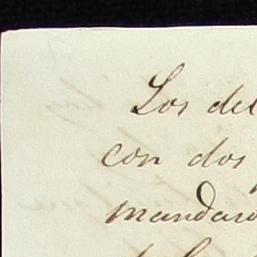 Los del
con dos
mandaro